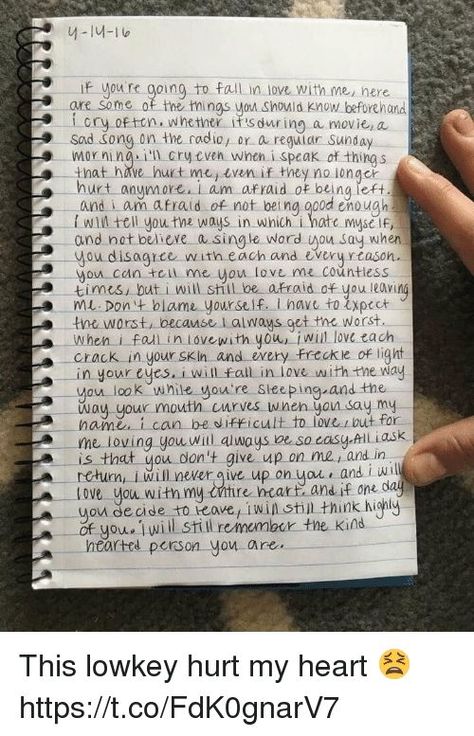 4-14-16
if you're going to fall in love with me, here
are some of the things you should know beforehand
i cry often. whether it's during a movie, a
sad song on the radio, or a regular Sunday
morning. i'll cry even when i speak of things
that have hurt me, even if they no longer
hurt anymore. i am afraid of being left.
and i am afraid of not being good enough.
i will tell you the ways in which i hate myself,
and not believe a single word you say when
you disagree with each and every reason.
you can tell me you love me countless
times, but i will still be afraid of you leaving
me. Don't blame yourself. I have to expect
the worst, because I always get the worst.
when i fall in love with you, i will love each
crack in your skin and every freckle of light
in your eyes. i will fall in love with the way
you look while you're sleeping and the
way your mouth curves when you say my
name. i can be difficult to love, but for
me loving you will always be so easy. All i ask
is that you don't give up on me, and in
return, i will never give up on you. and i will
love you with my entire heart. and if one day
you decide to leave, i will still think highly
of you. i will still remember the kind
hearted person you are.
This lowkey hurt my heart 😫
https://t.co/FdK0gnarV7